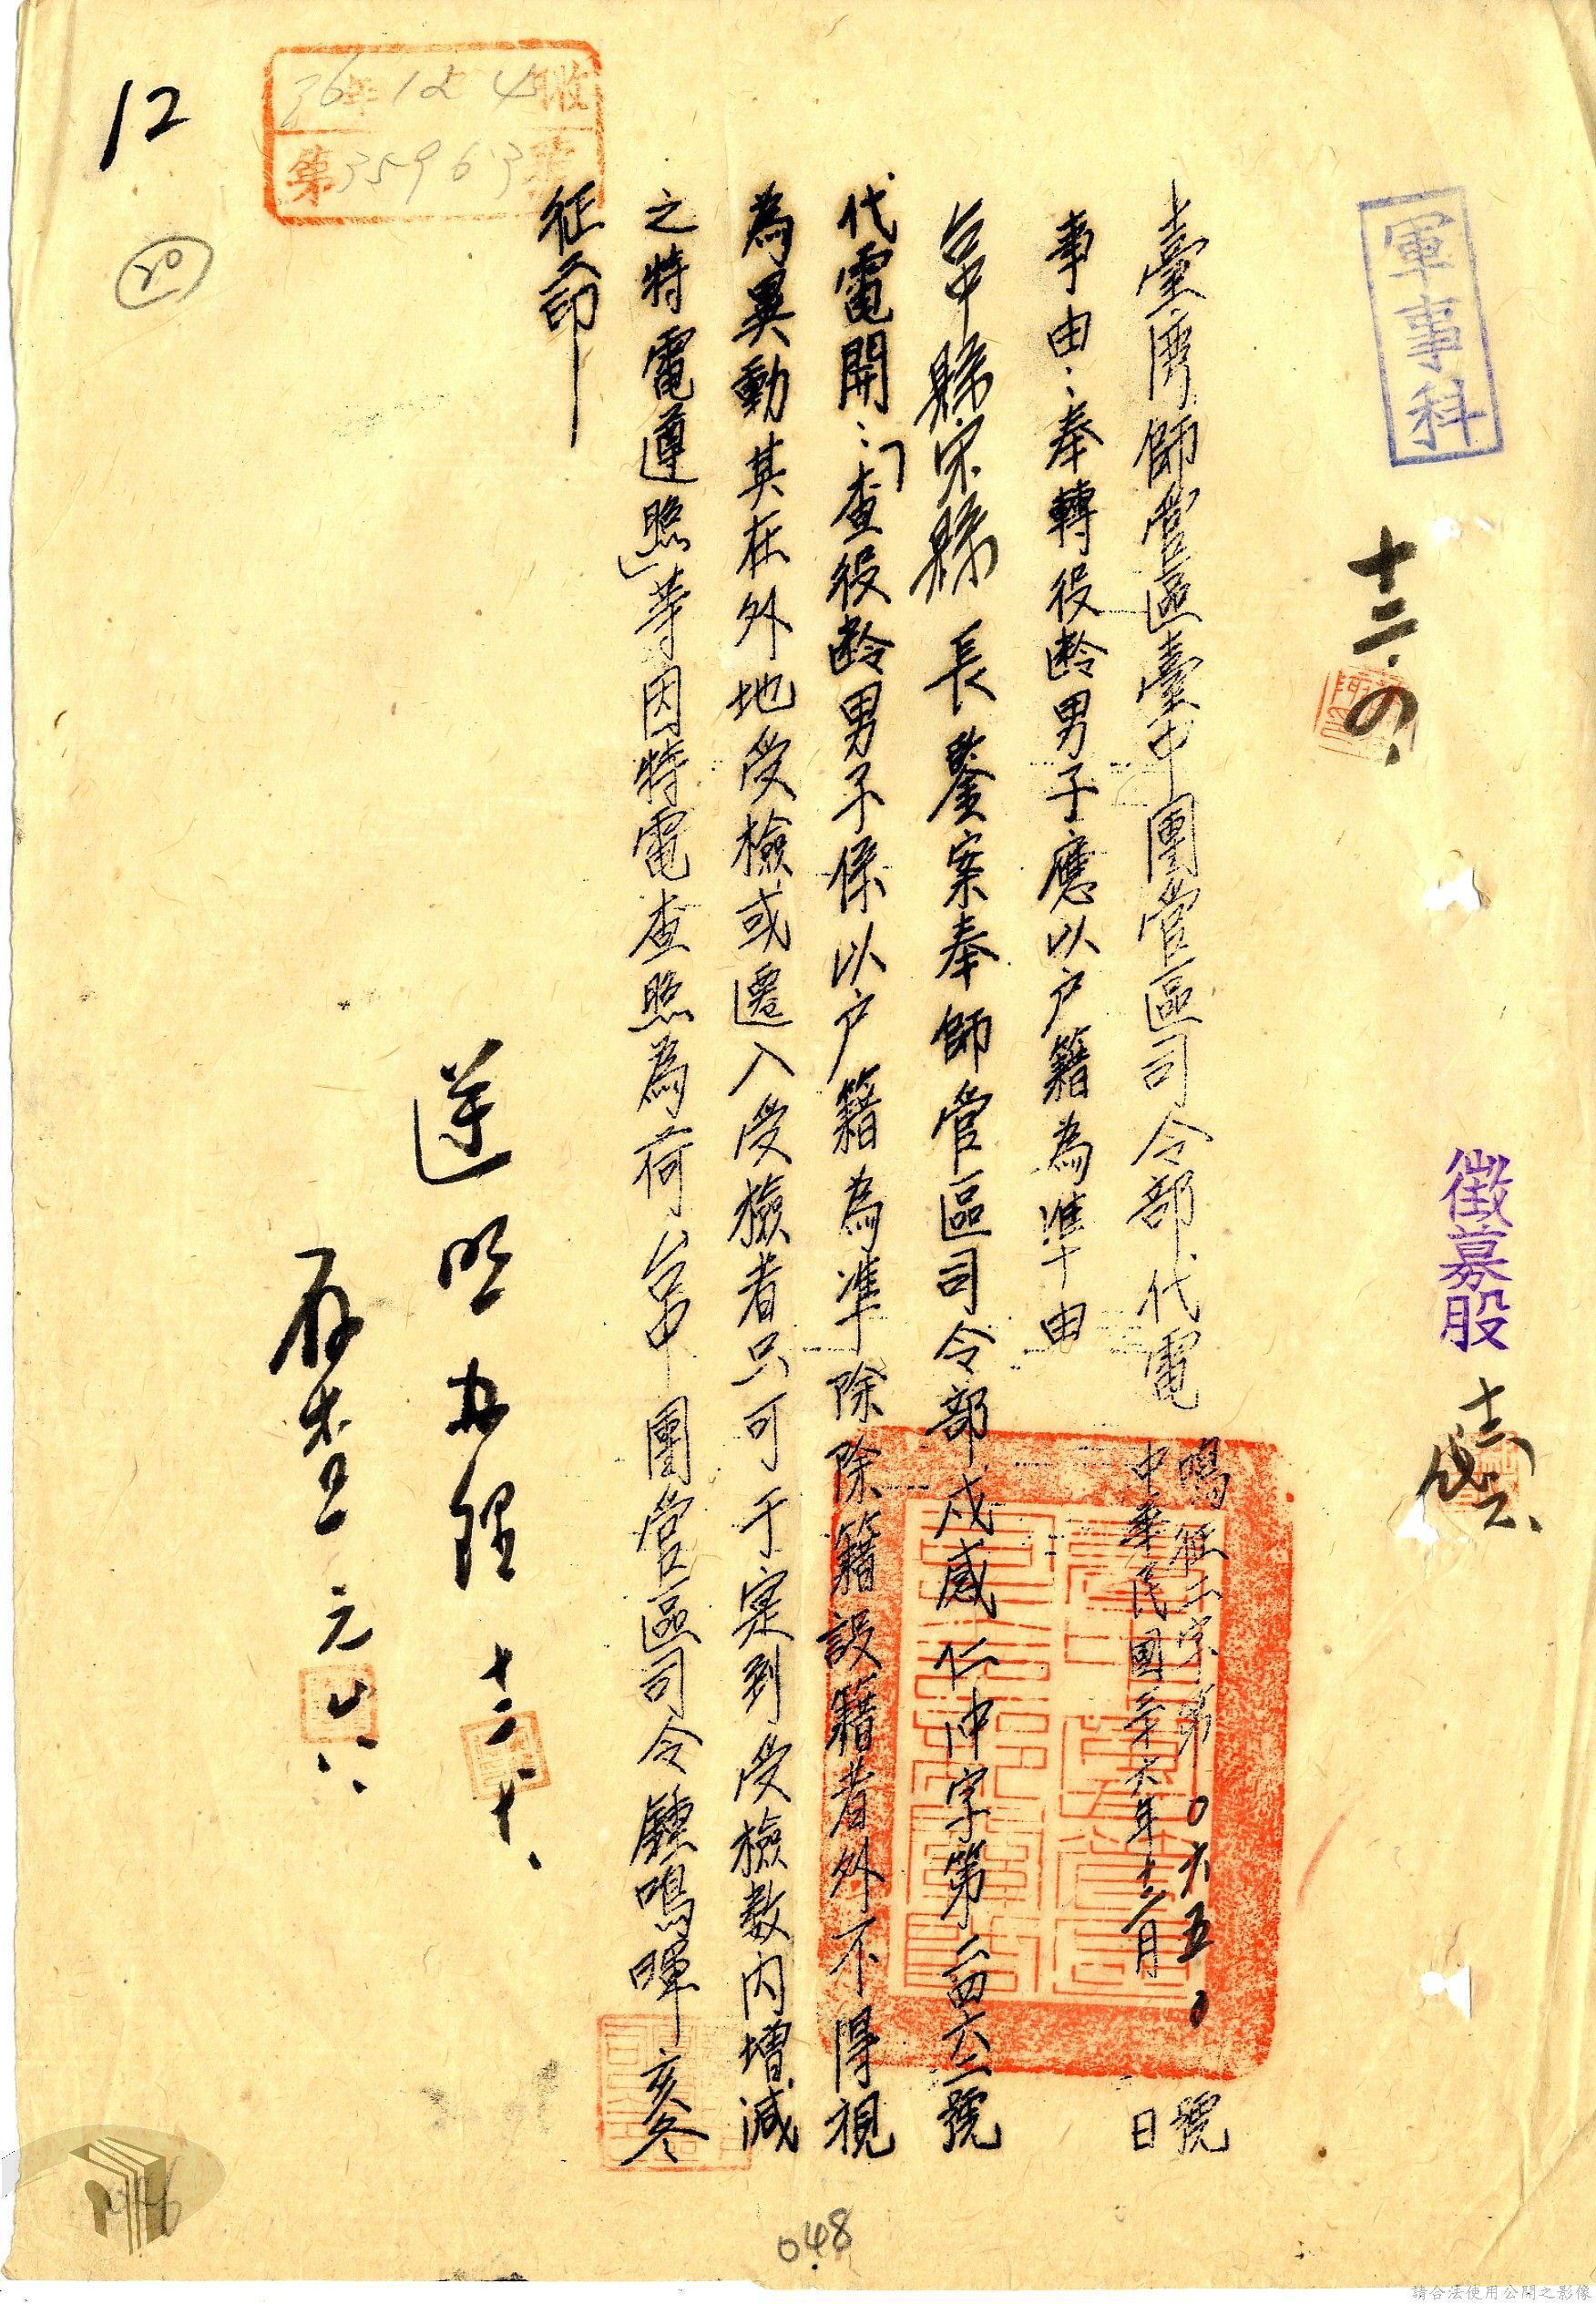 軍事科
十二.の.
徵募股
臺灣師管區臺中團管區司令部代電
鳴征二字第0六五0號
中華民國卅六年十二月 日
事由：奉轉役齡男子應以户籍為準由
台中縣宋縣長鑒案奉師管區司令部戍感仁冲字第二四六二號
代電開：「查役齡男子係以户籍為準除除籍設籍者外不得視
為異動其在外地受檢或遷入受檢者只可于寔到受檢數内增減
之特電遵照」等因特電查照為荷台中團管區司令鍾鳴暉亥冬
征二印
遵照办理 十二.十.
存查 元
36年12 4收
第35963號
12
20
048
請合法使用公開之影像